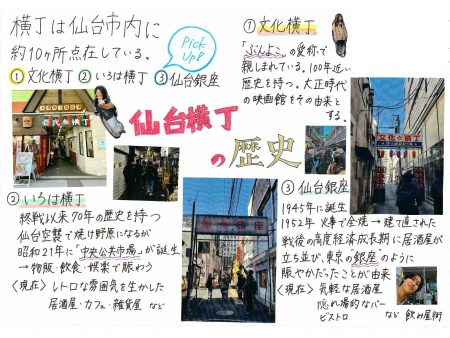 横丁は仙台市内に
約10ヶ所点在している。
Pick Up!
①文化横丁 ②いろは横丁 ③仙台銀座
仙台横丁
の歴史
①文化横丁
「ぶんよこ」の愛称で
親しまれている。100年近い
歴史を持つ。大正時代
の映画館をその由来と
する。
②いろは横丁
終戦以来70年の歴史を持つ
仙台空襲で焼け野原になるが
昭和21年に「中央公共市場」が誕生
→物販・飲食・娯楽で賑わう
〈現在〉レトロな雰囲気を生かした
居酒屋・カフェ・雑貨屋 など
③仙台銀座
1945年に誕生
1952年 火事で全焼→建て直された
戦後の高度経済成長期に居酒屋が
立ち並び、東京の"銀座"のように
賑やかだったことが由来
〈現在〉気軽な居酒屋
隠れ場的なバー
ビストロ など 飲み屋街
文化☆横丁
仙台銀座